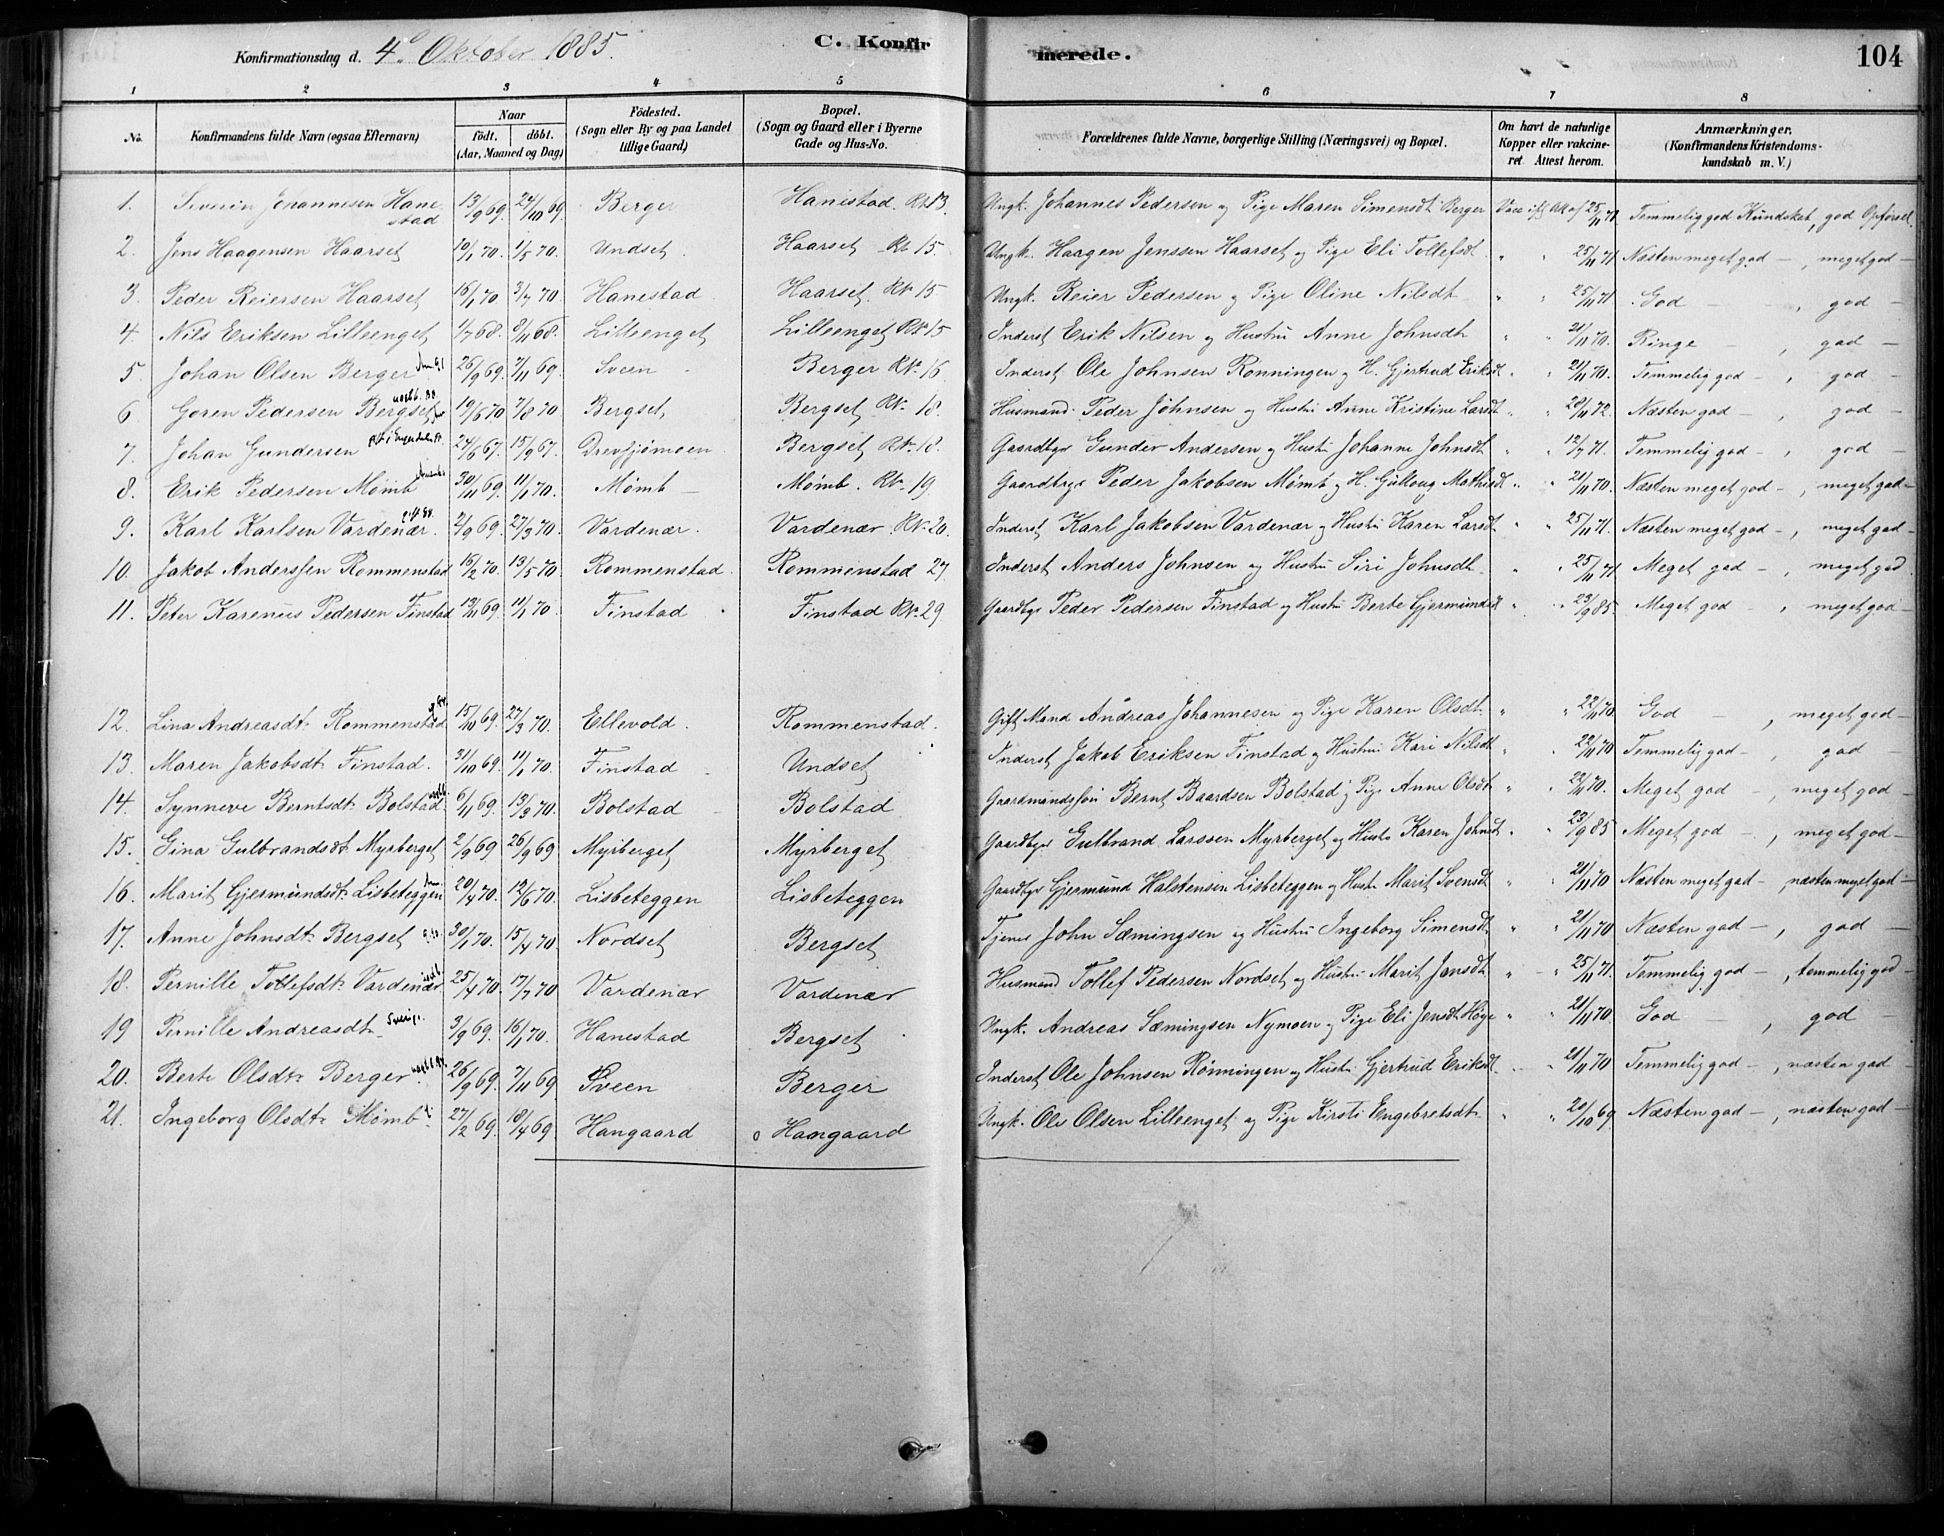 Konfirmationsdag d. 4de Oktober 1885.
C. Konfirmerede.
104
1 2 3 4 5 6 7 8
No. Konfirmandens fulde Navn (ogsaa Efternavn) Naar födt. döbt. (Aar, Maaned og Dag) Födested. (Sogn eller By og paa Landet tillige Gaard) Bopæl. (Sogn og Gaard eller i Byerne Gade og Hus-No. Forældrenes fulde Navne, borgerlige Stilling (Næringsvei) og Bopæl. Om havt de naturlige Kopper eller vakcineret Attest herom. Anmærkninger. (Konfirmandens Kristendomskundskab m. V.)
1. Severin Johannesen Hanestad 13/9 69. 24/10 69. Berger Hanestad. Rk. 13. Ungk. Johannes Pedersen og Pige Maren Simensdt Berger 25/11 71. Temmelig god Kundskab, god Opførsel
2. Jens Haagensen Haarset 10/1 70. 1/5 70. Undset. Haarset Rk. 15. Ungk. Haagen Jenssen Haarset og Pige Eli Tollefsdt " " 25/11 71 Næsten meget god —, meget god —
3. Peder Reiersen Haarset 16/1 70 3/7 70. Hanestad. Haarset. Rk. 15 Ungk. Reier Pedersen og Pige Oline Nilsdt " " 25/11 71. God —, god —
4. Nils Eriksen Lilleenget 1/7 68. 8/11 68. Lilleenget Lilleenget Rk. 15 Inderst Erik Nilsen og Hustru Anne Johnsdt " " 21/11 70. Ringe —, god —
5. Johan Olsen Berger 26/9 69. 7/11 69. Sveen Berger Rk. 16. Inderst Ole Johnsen Rønningen og H. Gjertrud Eriksdt " " 21/11 70. Temmelig god —, god —
6 Goren Pedersen Bergset 19/6 70 7/8 70. Bergset, Bergset, Rk. 18. Husmand. Peder Johnsen og Hustru Anne Kristine Larsdt " " 20/11 72. Næsten god —, god —
7. Johan Gundersen 24/6 67. 15/9 67. Drevsjømoen Bergset Rk. 18. Gaardbgr Gunder Andersen og Hustru Johanne Johnsdt " " 12/7 71. Temmelig god —, god —
8. Erik Pedersen Mømb 30/11 69 11/1 70. Mømb — Mømb. Rk. 19 Gaardbgr Peder Jakobsen Mømb og H. Gulloug Mathisdt " " 21/11 70. Næsten meget god —, meget god —
9. Karl Karlsen Vardenær. gift 98. 2/9 69. 27/3 70. Vardenær. Vardenær Rk. 20. Inderst Karl Jakobsen Vardenær og Hustru Karen Larsdt " " 25/11 71. Næsten meget god —, meget god —
10. Jakob Anderssen Rommenstad 16/2 70. 13/5 70. Rommenstad. Rommenstad 27. Inderst Anders Johnsen og Hustru Siri Johnsdt " " 25/11 71 Meget god —, meget god.
11. Peter Karenus Pedersen Finstad 19/11 69. 11/1 70. Finstad Finstad Rk. 29 Gaardbgr Peder Pedersen Finstad og Hustru Berte Gjermundsdt " " 23/9 85. Meget god —, meget god —
12. Lina Andreasdt. Rommenstad 15/10 69. 27/3 70. Ellevold. Rommenstad. Gift Mand Andreas Johannesen og Pige Karen Olsdt. " " 22/11 70 God, meget god —
13. Maren Jakobsdt. Finstad. 31/10 69. 11/1 70. Finstad Undset Inderst Jakob Eriksen Finstad og Hustru Kari Nilsdt " " 22/11 70 Temmelig god —, god —
14. Synneve Berntsdt. Bolstad 6/11 69. 13/3 70. Bolstad Bolstad Gaardmandssøn Bernt Baardsen Bolstad, Pige Anne Olsdt " " 22/11 70. Meget god —, meget god —
15. Gina Gulbrandsdt. Myrberget 2/9 69 26/9 69 Myrberget Myrberget Gaardbgr Gulbrand Larssen Myrberget og Hustr. Karen Johnsdt " " 23/9 85 Meget god —, meget god —
16. Marit Gjermundsdt. Lisbeteggen 20/4 70. 12/6 70. Lisbeteggen Lisbeteggen Gaardbgr Gjermund Halstensen Lisbeteggen og Hustr Marit Svensdt " " 21/11 70 Næsten meget god —, næsten meget god —
17. Anne Johnsdt. Bergset 30/1 70. 15/4 70 Nordset Bergset Tjener John Sæmingsen og Hustru Ingeborg Simensdt " " 21/11 70 Næsten god —, god —
18. Pernille Tollefsdt. Vardenær 25/4 70. 17/7 70 Vardenær Vardenær Husmand Tollef Pedersen Nordset og Hustru Marit Jensdt " " 25/11 71. Temmelig god —, temmelig god —
19 Pernille Andreasdt. 3/9 69. 16/1 70. Hanestad Bergset Ungk. Andreas Sæmingsen Nymoen og Pige Eli Jensdt. Høye " " 21/11 70. God —, god —
20. Berte Olsdt. Berger. 26/9 69. 7/11 69 Sveen Berger Inderst Ole Johnsen Rønningen og Hustr. Gjertrud Eriksdt " " 21/11 70 Temmelig god —, næsten god —
21. Ingeborg Olsdt. Mømb 27/2 69. 18/4 69 Hangaard Hangaard Ungk. Ole Olsen Lilleenget og Pige Kirsti Engebretsdt. " " 20/10 69 Næsten god —, næsten god —